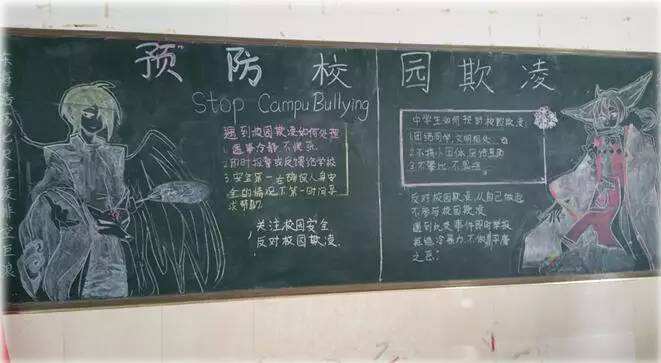 预防校园欺凌
Stop Campu Bullying
遇到校园欺凌如何处理
1.遇事冷静,不慌乱.
2.即时报警或反馈给学校
3.安全第一,在确保人身安
全的情况下第一时间寻
求帮助?
关注校园安全
反对校园欺凌.
中学生如何预防校园欺凌
1.团结同学,文明相处
2.不搞小团体,
3.不攀比
反对校园欺凌,从自己做起
不参与校园欺凌
遇到此类事件即时举报
拒绝冷暴力,不做平庸
之恶!